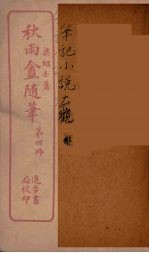 筆記小說大觀
梁紹壬著
秋雨盦隨筆 第四冊
進步書
局校印